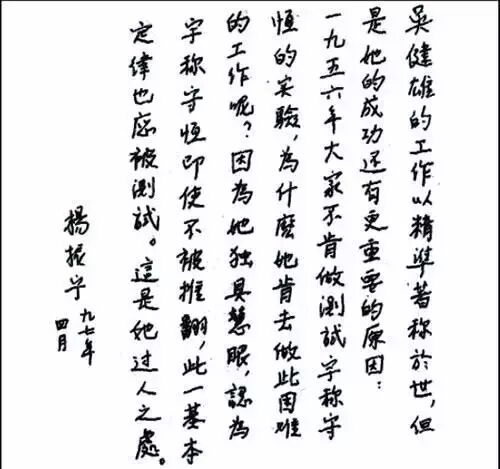 吳健雄的工作以精準著称於世,但
是她的成功还有更重要的原因:
一九五六年大家不肯做測試宇称守
恒的实驗,為什麽她肯去做此困难
的工作呢?因為她独具慧眼,認為
宇称守恒即使不被推翻,此一基本
定律也应被測試。這是她过人之處。
楊振宁
九七年
四月